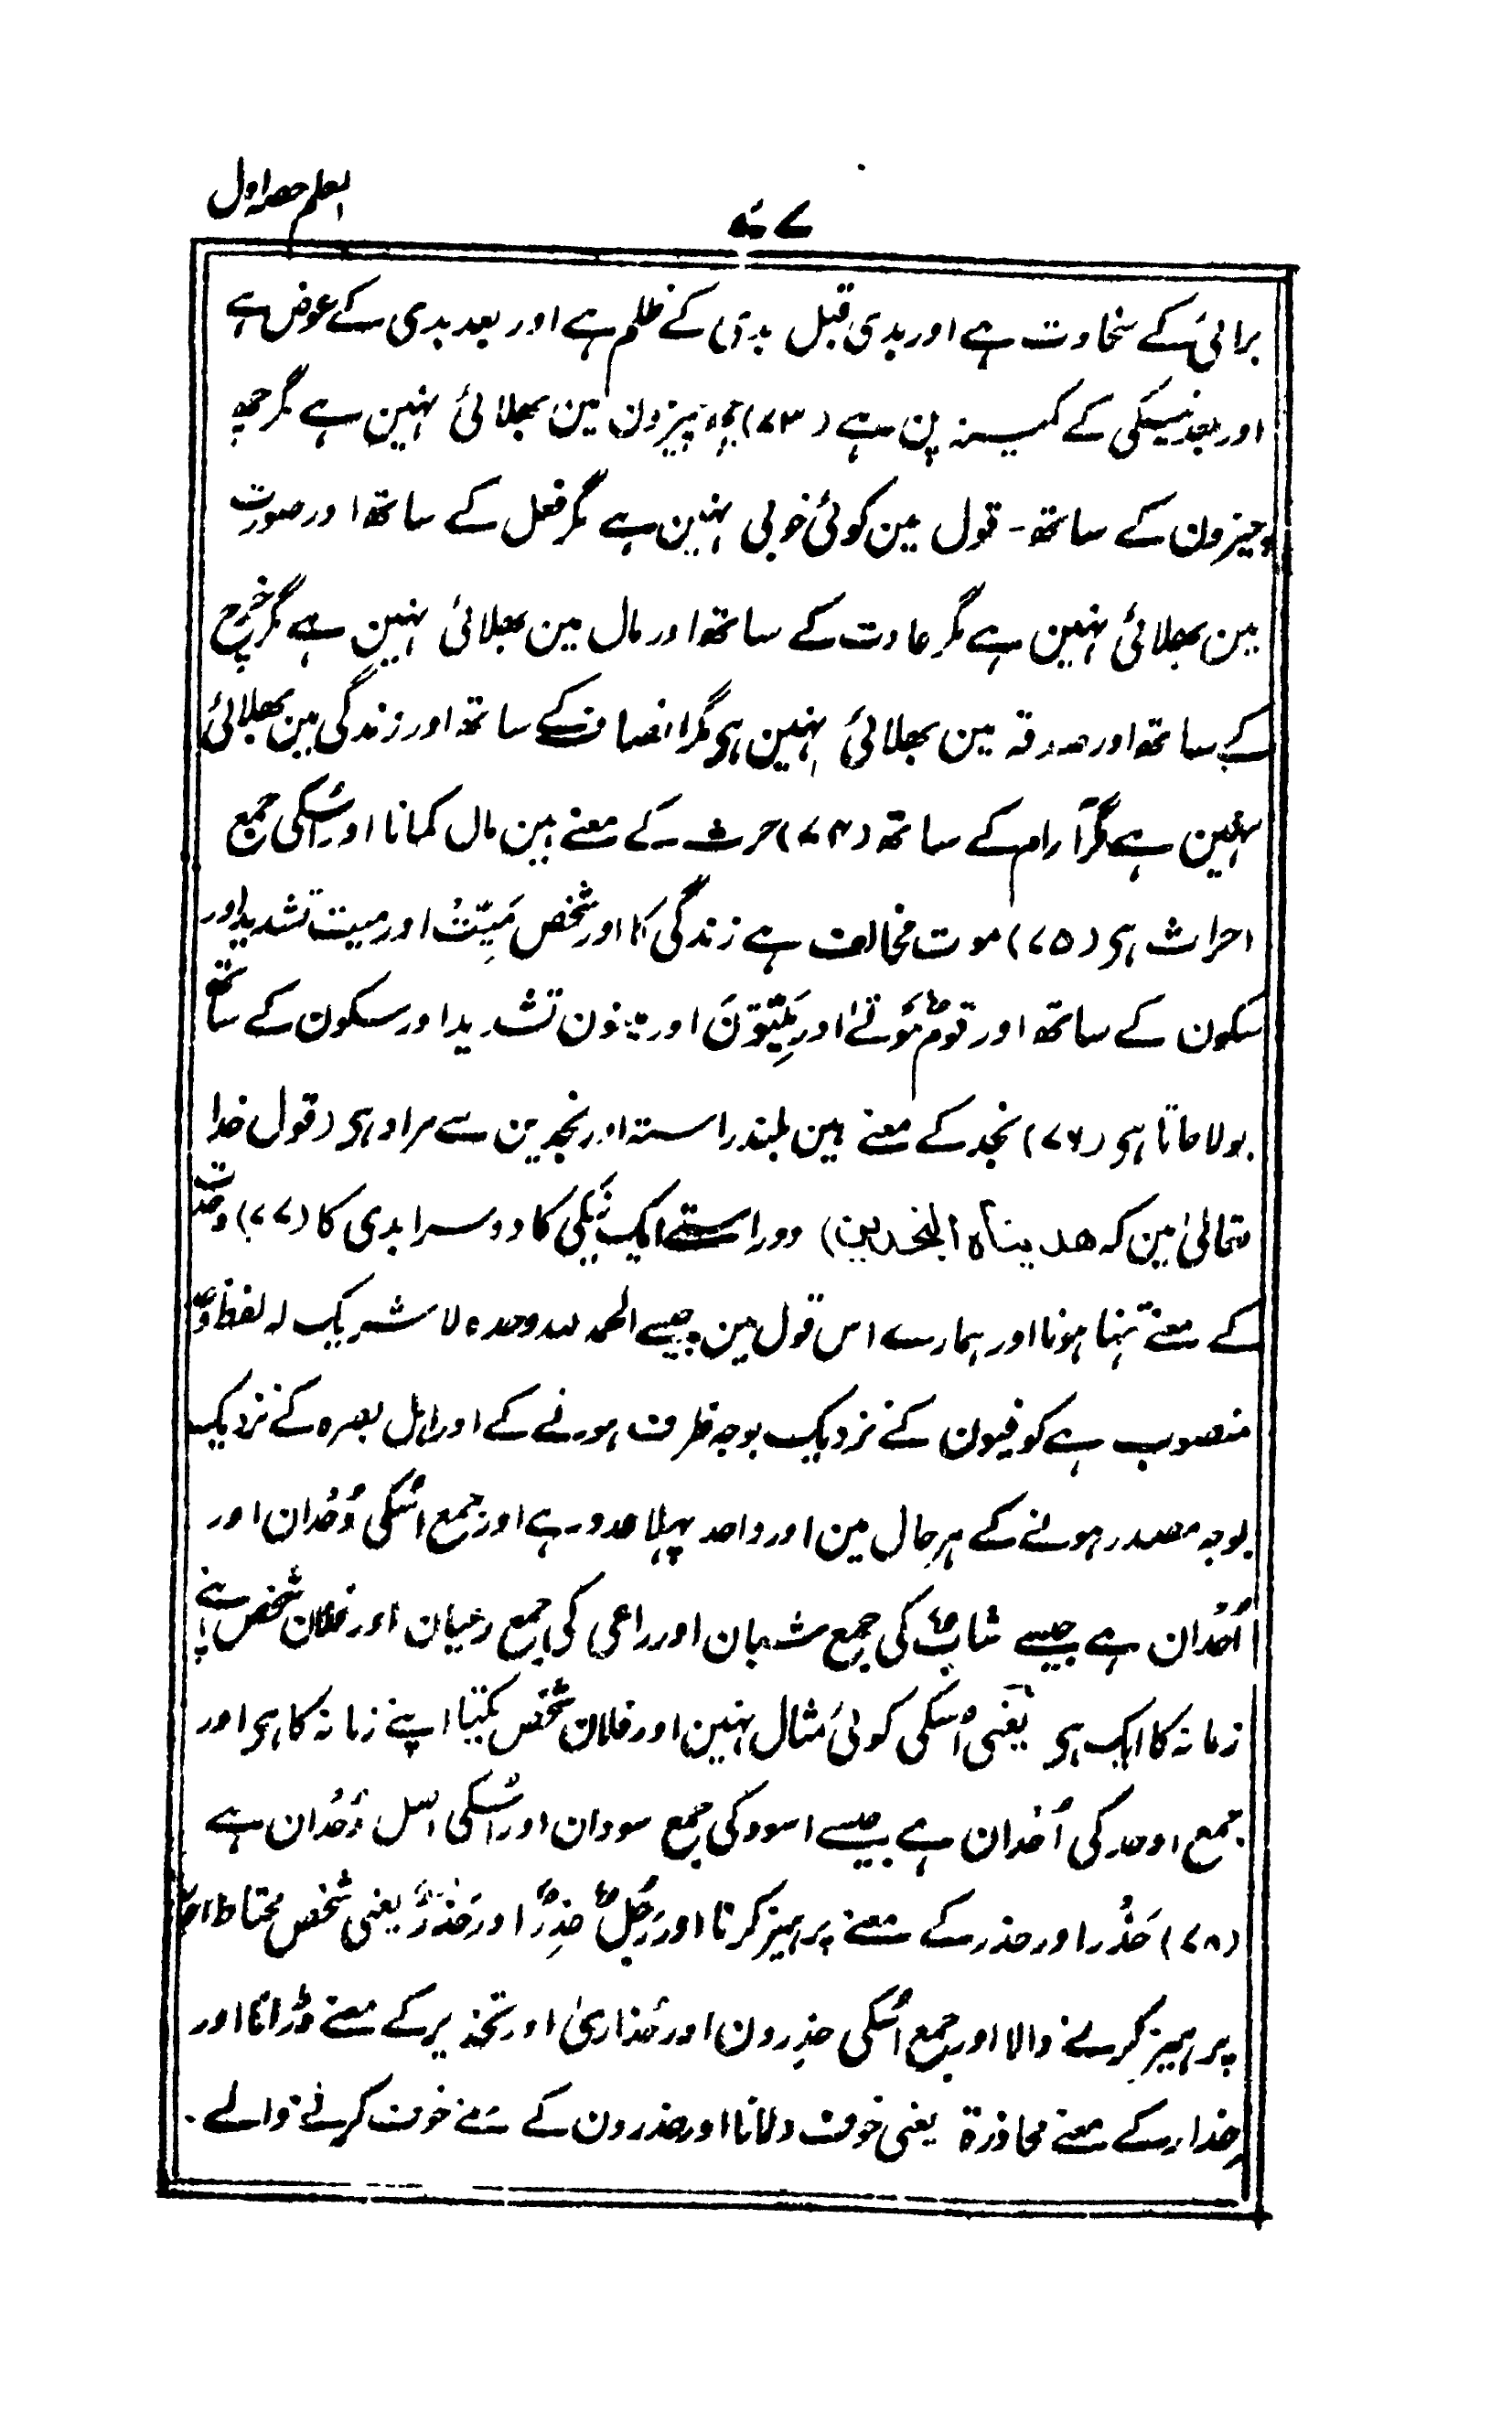 العلم حصہ اول
برائی کے سخاوت ہے اور بدی قبل بدی کے ظلم ہے اور بعد بدی کے عوض ہے
اور بعد نیکی کے کمینہ پن ہے (۷۳) چھ چیزون مین بھلائی نہین ہے مگر چھ
چیزون کے ساتھ - قول مین کوئی خوبی نہین ہے مگر فعل کے ساتھ اور صورت
مین بھلائی نہین ہے مگر عادت کے ساتھ اور مال مین بھلائی نہین ہے مگر خرچ
کے ساتھ اور صدقہ مین بھلائی نہین ہی مگر انصاف کے ساتھ اور زندگی مین بھلائی
نہین ہے مگر آرام کے ساتھ (۷۴) حرث کے معنے ہین مال کمانا اور اُسکی جمع
احراث ہی (۷۵) موت مخالف ہے زندگی کا اور شخص مَیِّتٌ اور میت تشدید اور
سکون کے ساتھ اور قومٌ مَوتٰی اور مَیِّتُونَ اور میتون تشدید اور سکون کے ساتھ
بولا جاتا ہی (۷۶) نجد کے معنے ہین بلند راستہ اور نجدین سے مراد ہی (قول خدا
تعالیٰ مین کہ ھدیناہ النجدین) دو راستے ایک نیکی کا دوسرا بدی کا (۷۷) وحدت
کے معنے تنہا ہونا اور ہمارے اس قول مین جیسے الحمد للہ وحدہ لا شریک لہ لفظ وحدہ
منصوب ہے کوفیون کے نزدیک بوجہ ظرف ہونے کے اور اہل بصرہ کے نزدیک
بوجہ مصدر ہونے کے ہر حال مین اور واحد پہلا عدد ہے اور جمع اُسکی وُحدان اور
اُحدان ہے جیسے شابٌ کی جمع شبان اور راعی کی جمع رعیان اور فلان شخص اپنے
زمانہ کا ایک ہی یعنی اُسکی کوئی مثال نہین اور فلان شخص یکتا اپنے زمانہ کا ہی اور
جمع اوحد کی اُحدان ہے جیسے اسود کی جمع سودان اور اُسکی اصل وُحدان ہے
(۷۸) حَذر اور حذر کے معنے پرہیز کرنا اور رَجُلٌ حَذِرٌ اور حَذُرٌ یعنی شخص محتاط اور
پرہیز کرنے والا اور جمع اُسکی حذِرون اور حَذاریٰ اور تحذیر کے معنے ڈرانا اور
حِذار کے معنے محاذرۃ یعنی خوف دلانا اور حذرون کے معنے خوف کرنے والے ۔